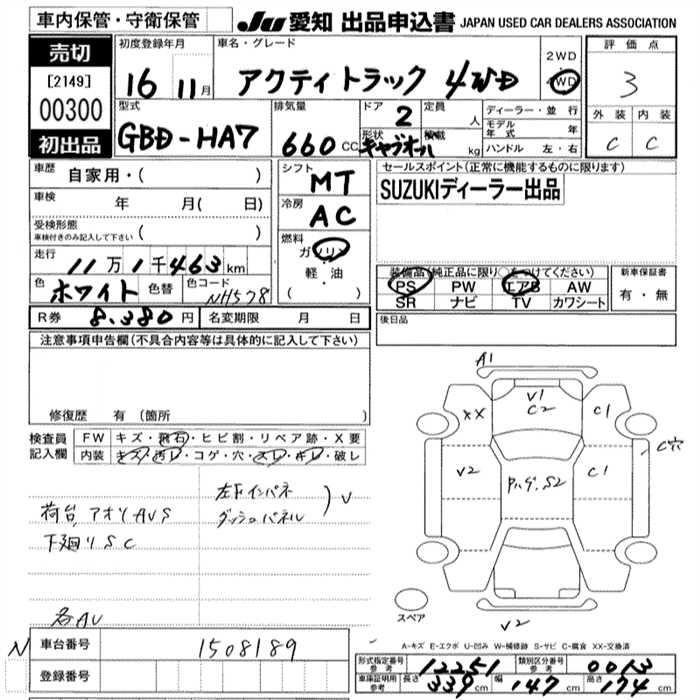 車内保管・守衛保管
JU 愛知 出品申込書 JAPAN USED CAR DEALERS ASSOCIATION
売切
[2149]
00300
初出品
初度登録年月
16 11月
車名・グレード
アクティトラック 4WD
2WD
4WD
評価点
3
外装 内装
C C
型式
GBD-HA7
排気量
660 CC
ドア 2
形状 キャブオール
定員 人
積載 kg
ディーラー・並行
モデル年式 年
ハンドル 左・右
車歴
自家用・( )
車検
年 月( 日)
受検形態
車検付きのみ記入して下さい ( )
走行
11万1千463km
色 ホワイト 色替
色コード NH578
シフト
MT
冷房
AC
燃料
ガソリン
軽・油
( ・ )
セールスポイント(正常に機能するものに限ります)
SUZUKIディーラー出品
装備品(純正品に限り○をつけてください)
PS PW エアB AW
SR ナビ TV カワシート
新車保証書
有・無
後日品
R券 8.380円 名変期限 月 日
注意事項申告欄(不具合内容等は具体的に記入して下さい)
修復歴 有(箇所 )
検査員記入欄
FW キズ・飛石・ヒビ割・リペア跡・X要
内装 キズ・汚レ・コゲ・穴・スレ・キレ・破レ
荷台,アオリAVS
下廻りSC
左下インパネ
ダッシュパネル
)V
各AV
A1
V1
C2
XX
C1
C穴
V2
C1
S2
V2
スペア
A-キズ E-エクボ U-凹み W-補修跡 S-サビ C-腐食 XX-交換済
N
車台番号 1508189
登録番号
形式指定番号参考 12251
類別区分番号参考 0013
車庫証明用参考 長さ 339cm 幅 147cm 高さ 174cm